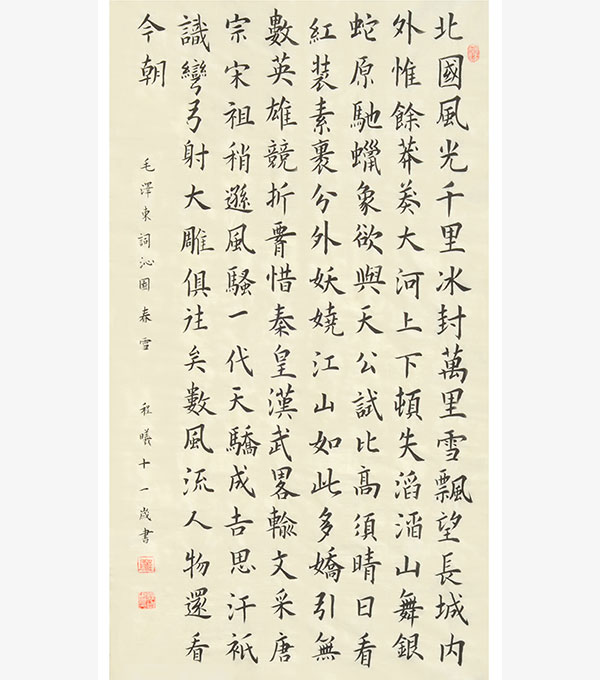 北國風光千里冰封萬里雪飄望長城內
外惟餘莽莽大河上下頓失滔滔山舞銀
蛇原馳蠟象欲與天公試比高須晴日看
紅裝素裹分外妖嬈江山如此多嬌引無
數英雄競折腰惜秦皇漢武畧輸文采唐
宗宋祖稍遜風騷一代天驕成吉思汗祇
識彎弓射大雕俱往矣數風流人物還看
今朝
毛澤東詞沁園春雪 程曦十一歲書